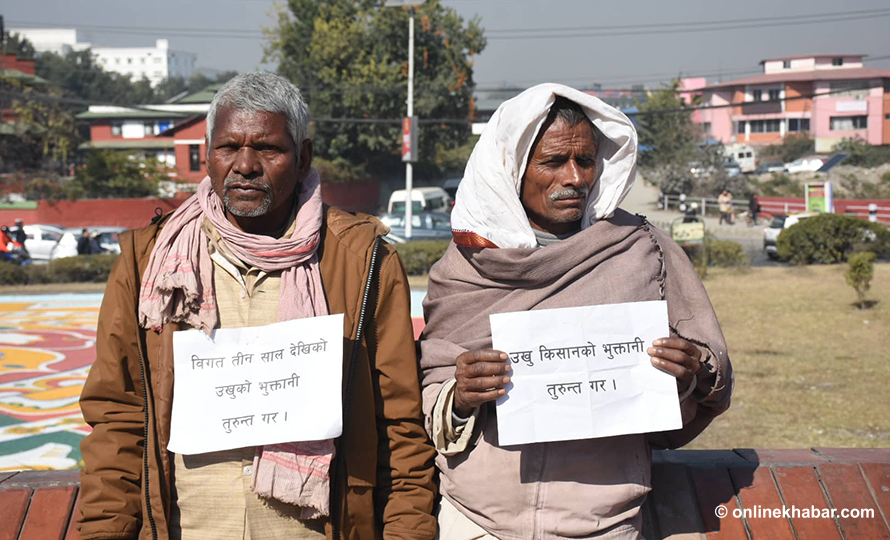 विगत तीन साल देखिको
उखुको भुक्तानी
तुरुन्त गर ।
उखु किसानको भुक्तानी
तुरुन्त गर ।
© onlinekhabar.com